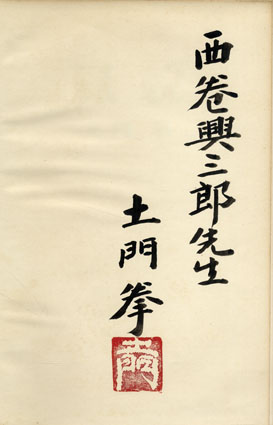 西巻興三郎先生
土門拳